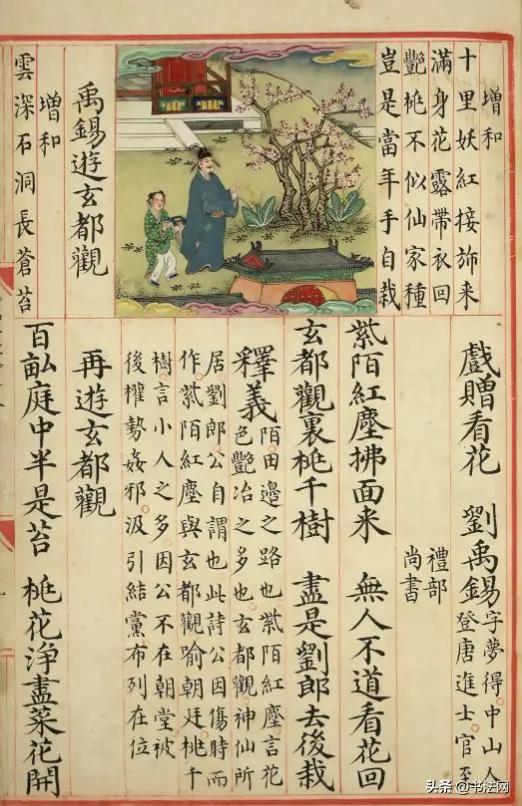 增和
十里妖紅接斾来
滿身花露帶衣回
艷桃不似仙家種
豈是當年手自栽
禹錫遊玄都觀
增和
雲深石洞長蒼苔
戲贈看花 劉禹錫 字夢得中山人
登唐進士官至
禮部
尚書
紫陌紅塵拂面来 無人不道看花回
玄都觀裏桃千樹 盡是劉郎去後栽
釋義 陌田邊之路也紫陌紅塵言花
色艷冶之多也玄都觀神仙所
居劉郎公自謂也此詩公因傷時而
作紫陌紅塵與玄都觀喻朝廷桃千
樹言小人之多因公不在朝堂被
後權勢姦邪汲引結黨布列在位
再遊玄都觀
百畆庭中半是苔 桃花淨盡菜花開
头条 @书法网